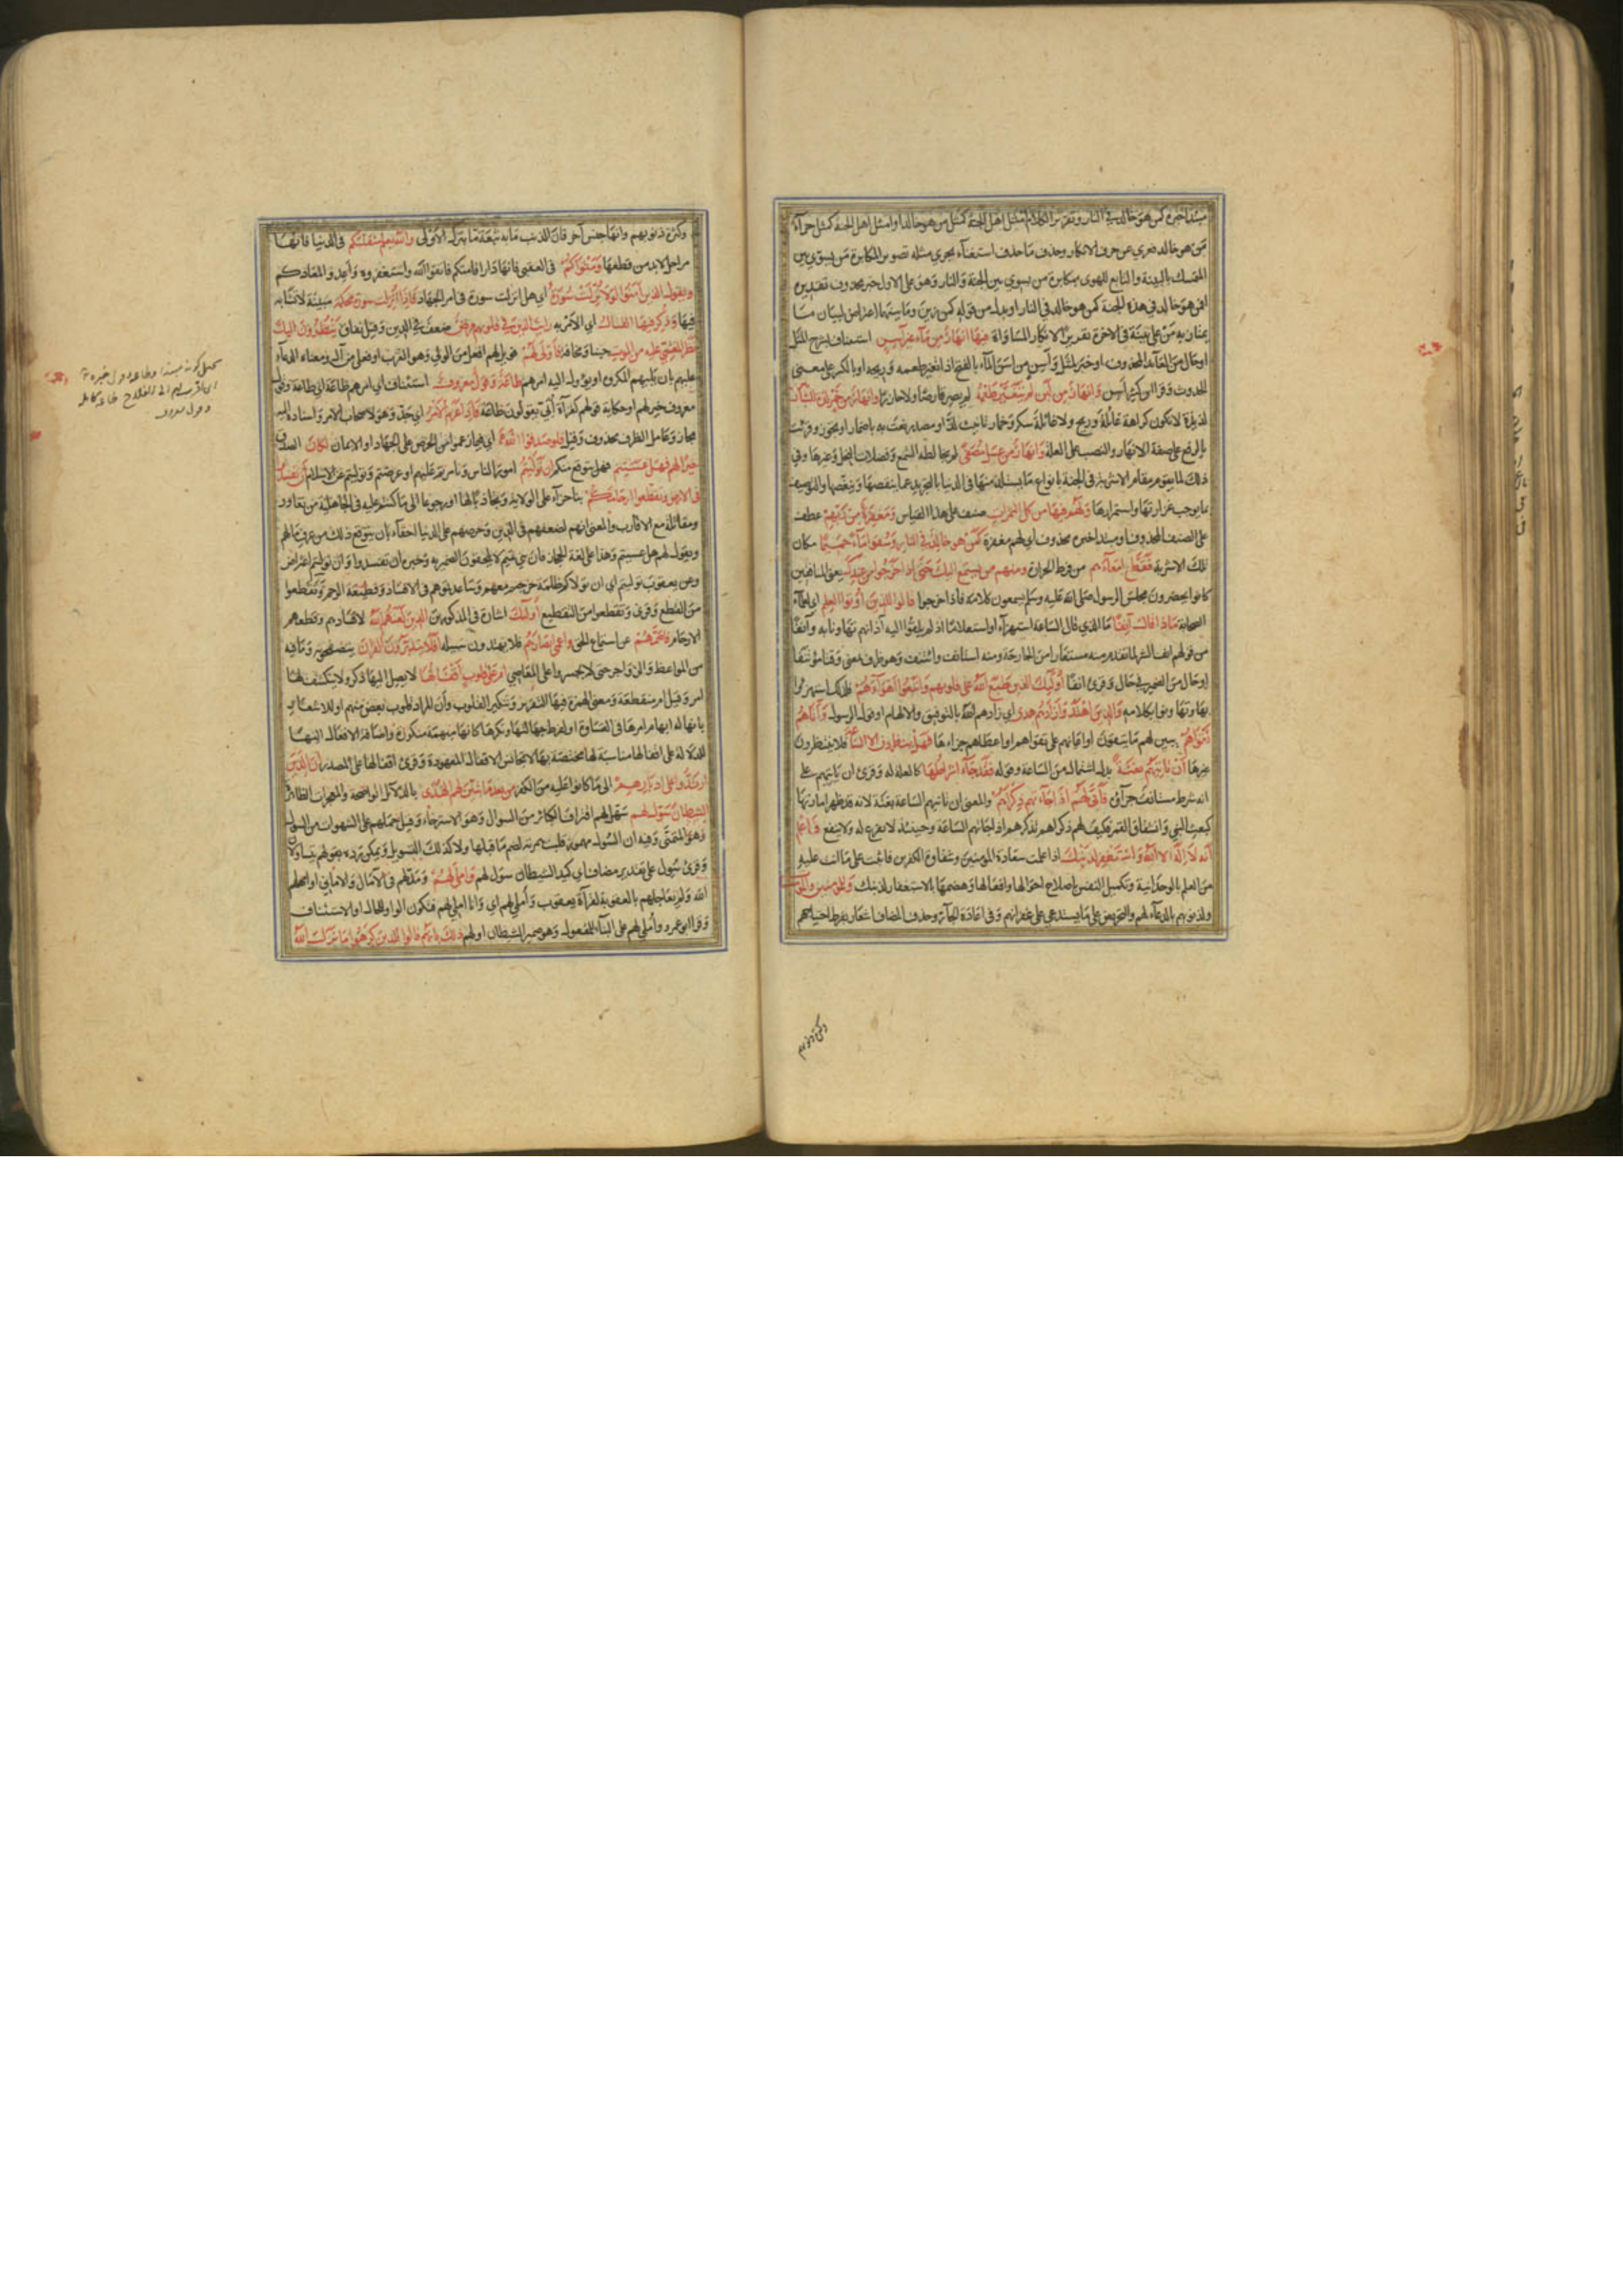 مبتدأ خبره كمن هو خالد في النار وتقدير الكلام امثل اهل الجنة كمثل من هو خالد او امثل اهل الجنة كمثل جزآء
من هو خالد فعري عن حرف الانكار وحذف ما حذف استغنآء بجري مثله تصويرا لمكابرة من يسوي بين
المتمسك بالبينة والتابع للهوى بمكابرة من يسوي بين الجنة والنار وهو على الاول خبر محذوف تقديره
افمن هو خالد في هذه الجنة كمن هو خالد في النار او بدل من قوله كمن زين وما بينهما اعتراض لبيان ما
يمتاز به من على بينة في الاخرة تقريرا لانكار المساواة فيها انهار من مآء غير آسن استيناف لشرح المثل
او حال من العآئد المحذوف او خبر لمثل وآسن من اسن المآء بالفتح اذا تغير طعمه وريحه او بالكسر على معنى
الحدوث وقرا ابن كثير اسن وانهار من لبن لم يتغير طعمه لم يصر قارصا ولا حازرا وانهار من خمر لذة للشاربين
لذيذة لا تكون كراهة غائلة وريح ولا غائلة سكر وخمار تانيث لذ او مصدر نعت به باضمار او تجوز وقرئت
بالرفع على صفة الانهار والنصب على العلة وانهار من عسل مصفى لم يخالطه الشمع وفضلات النحل وغيرها وفي
ذلك لما يقوم مقام الاشربة في الجنة بانواع ما يستلذ منها في الدنيا بالتجريد عما ينقصها وينغصها والتوصيف
بما يوجب غزارتها واستمرارها ولهم فيها من كل الثمرات صنف على هذا القياس ومغفرة من ربهم عطف
على الصنف المحذوف او مبتدا خبره محذوف اي لهم مغفرة كمن هو خالد في النار وسقوا مآء حميما مكان
تلك الاشربة فقطع امعآءهم من فرط الحرارة ومنهم من يستمع اليك حتى اذا خرجوا من عندك يعني المنافقين
كانوا يحضرون مجلس الرسول صلى الله عليه وسلم يسمعون كلامه فاذا خرجوا قالوا للذين اوتوا العلم اي لعلمآء
الصحابة ماذا قال آنفا ما الذي قال الساعة استهزآء او استعلاما اذ لم يلقوا اليه آذانهم تهاونا به وآنفا
من قولهم انف الشئ لما تقدم منه مستعار من الجارحة ومنه استانف وائتنف وهو ظرف بمعنى وقتا مؤتنفا
او حال من الضمير في قال وقرئ انفا اولئك الذين طبع الله على قلوبهم واتبعوا اهوآءهم فلذلك استهزؤا
وتهاونوا بكلامه والذين اهتدوا زادهم هدى اي زادهم الله بالتوفيق والالهام او قول الرسول وآتاهم
تقواهم بين لهم ما يتقون او اعانهم على تقواهم او اعطاهم جزاءها فهل ينظرون الا الساعة فلا ينتظرون
غيرها ان تاتيهم بغتة بدل اشتمال من الساعة وقوله فقد جآء اشراطها كالعلة له وقرئ ان تاتهم على
انه شرط مستانف جزآؤه فانى لهم اذا جآءتهم ذكراهم والمعنى ان تاتهم الساعة بغتة لانه قد ظهر اماراتها
كمبعث النبي وانشقاق القمر فكيف لهم ذكراهم تذكرهم اذا جآتهم الساعة وحينئذ لا تفرغ له ولا ينفع فاعلم
انه لا اله الا الله واستغفر لذنبك اذا علمت سعادة المؤمنين وشقاوة الكفرين فاثبت على ما انت عليه
من العلم بالوحدانية وتكميل النفس باصلاح احوالها وافعالها وهضمها بالاستغفار لذنبك وللمؤمنين والمؤمنات
ولذنوبهم بالدعآء لهم والتحريض على ما يستدعي غفرانهم وفي اعادة الجآر وحذف المضاف اشعار بفرط احتياجهم
وكثرة ذنوبهم
وكثرة ذنوبهم وانها جنس آخر فان الذنب ما له تبعة ما بترك الاولى والله يعلم متقلبكم في الدنيا فانها
مراحل لا بد من قطعها ومثواكم في العقبى فانها دار اقامتكم فاتقوا الله واستغفروه واعدوا لمعادكم
ويقول الذين آمنوا لولا نزلت سورة اي هلا نزلت سورة في امر الجهاد فاذا انزلت سورة محكمة مبينة لا تشابه
فيها وذكر فيها القتال اي الامر به رايت الذين في قلوبهم مرض ضعف في الدين وقيل نفاق ينظرون اليك
نظر المغشي عليه من الموت جبنا ومخافة فاولى لهم فويل لهم افعل من الولي وهو القرب او فعلى من آل ومعناه الدعآء
عليهم بان يليهم المكروه او يؤول اليه امرهم طاعة وقول معروف استئناف اي امرهم طاعة او طاعة وقول
معروف خير لهم او حكاية قولهم لقرآة ابي يقولون طاعة فاذا عزم الامر اي جد وهو لاصحاب الامر واسناده اليه
مجاز وعامل الظرف محذوف وقيل فلو صدقوا الله اي فيما زعموا من الحرص على الجهاد او الايمان لكان الصدق
خيرا لهم فهل عسيتم فهل يتوقع منكم ان توليتم امور الناس وتامرتم عليهم او عرضتم وتوليتم عن الاسلام ان تفسدوا
في الارض وتقطعوا ارحامكم تناحرا على الولاية وتجاذبا لها او رجوعا الى ما كنتم عليه في الجاهلية من تغاور
ومقاتلة مع الاقارب والمعنى انهم لضعفهم في الدين وحرصهم على الدنيا احقآء بان يتوقع ذلك من عرف حالهم
ويقول لهم هل عسيتم وهذا على لغة الحجاز فان بني تميم لا يلحقون الضمير به وخبره ان تفسدوا وان توليتم اعتراض
وعن يعقوب توليتم اي ان تولاكم ظلمة خرجتم معهم وساعدتموهم في الافساد وقطيعة الرحم وتقطعوا
من القطع وقرئ وتقطعوا من التقطيع اولئك اشارة الى المذكورين الذين لعنهم الله لافسادهم وقطعهم
الارحام فاصمهم عن استماع الحق واعمى ابصارهم فلا يهتدون سبيله افلا يتدبرون القرآن يتصفحونه وما فيه
من المواعظ والزواجر حتى لا يجسروا على المعاصي ام على قلوب اقفالها لا يصل اليها ذكر ولا ينكشف لها
امر وقيل ام منقطعة ومعنى الهمزة فيها التقرير وتنكير القلوب لان المراد قلوب بعض منهم او للاشعار
بانها لابهام امرها في القساوة او لفرط جهالتها ونكرها كانها مبهمة منكورة واضافة الاقفال اليها
للدلالة على اقفال مناسبة لها مختصة بها لا تجانس الاقفال المعهودة وقرئ اقفالها على المصدر ان الذين
ارتدوا على ادبارهم الى ما كانوا عليه من الكفر من بعد ما تبين لهم الهدى بالدلائل الواضحة والمعجزات الظاهرة
الشيطان سول لهم سهل لهم اقتراف الكبائر من السول وهو الاسترخاء وقيل حملهم على الشهوات من السول
وهو التمني وفيه ان السول مهموز قلبت همزته لضم ما قبلها ولا كذلك التسويل ويمكن رده بقولهم يتساولان
وقرئ سول على تقدير مضاف اي كيد الشيطان سول لهم واملى لهم ومد لهم في الآمال والاماني او امهلهم
الله ولم يعاجلهم بالعقوبة لقرآة يعقوب وأملي لهم اي وانا املي لهم فتكون الواو للحال او الاستئناف
وقرا ابو عمرو وأملي لهم على البنآء للمفعول وهو ضمير الشيطان او لهم ذلك بانهم قالوا للذين كرهوا ما نزل الله